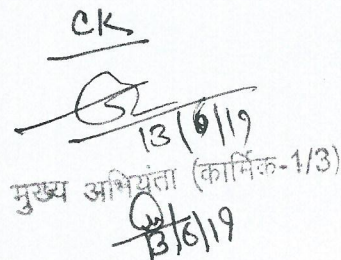 CK
13/6/19
मुख्य अभियंता (कार्मिक-1/3)
13/6/19